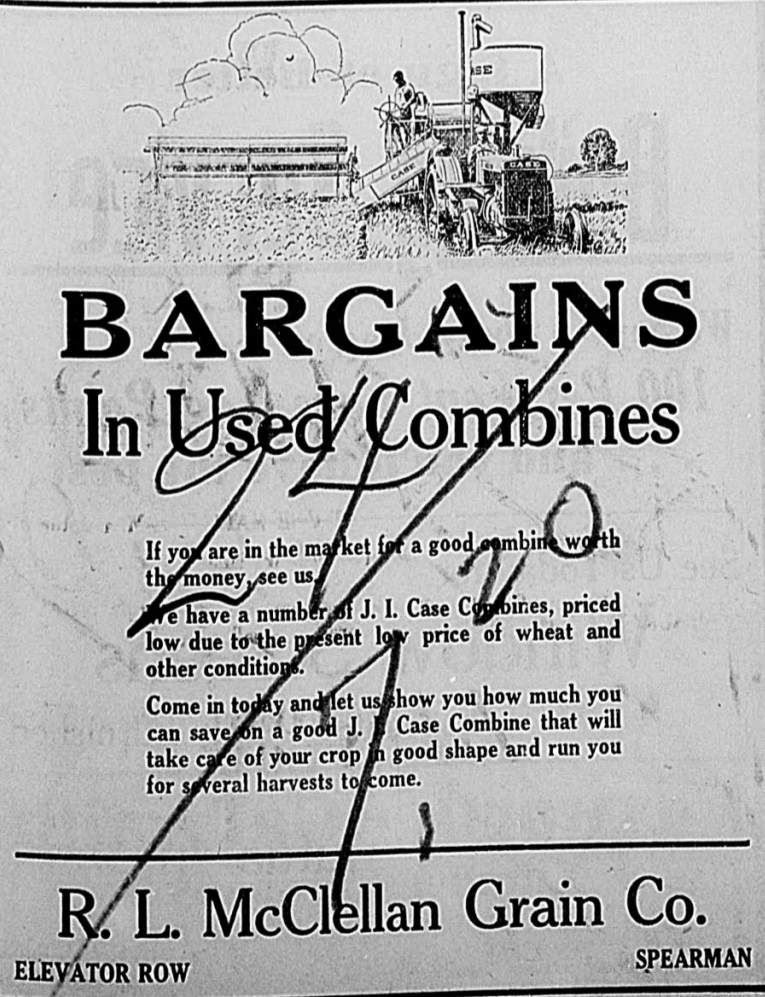 CASE
CASE
CASE
BARGAINS
In Used Combines
If you are in the market for a good combine worth
the money, see us.
We have a number of J. I. Case Combines, priced
low due to the present low price of wheat and
other conditions.
Come in today and let us show you how much you
can save on a good J. I. Case Combine that will
take care of your crop in good shape and run you
for several harvests to come.
R. L. McClellan Grain Co.
ELEVATOR ROW
SPEARMAN